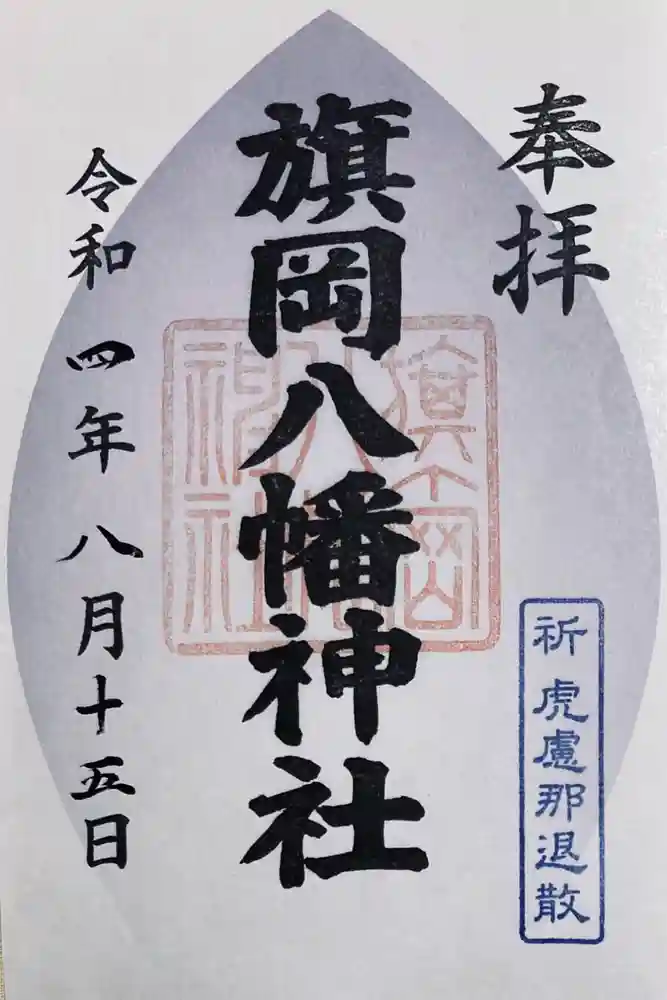 奉拝
祈 虎慮那退散
旗岡八幡神社
旗岡八幡神社
令和四年八月十五日